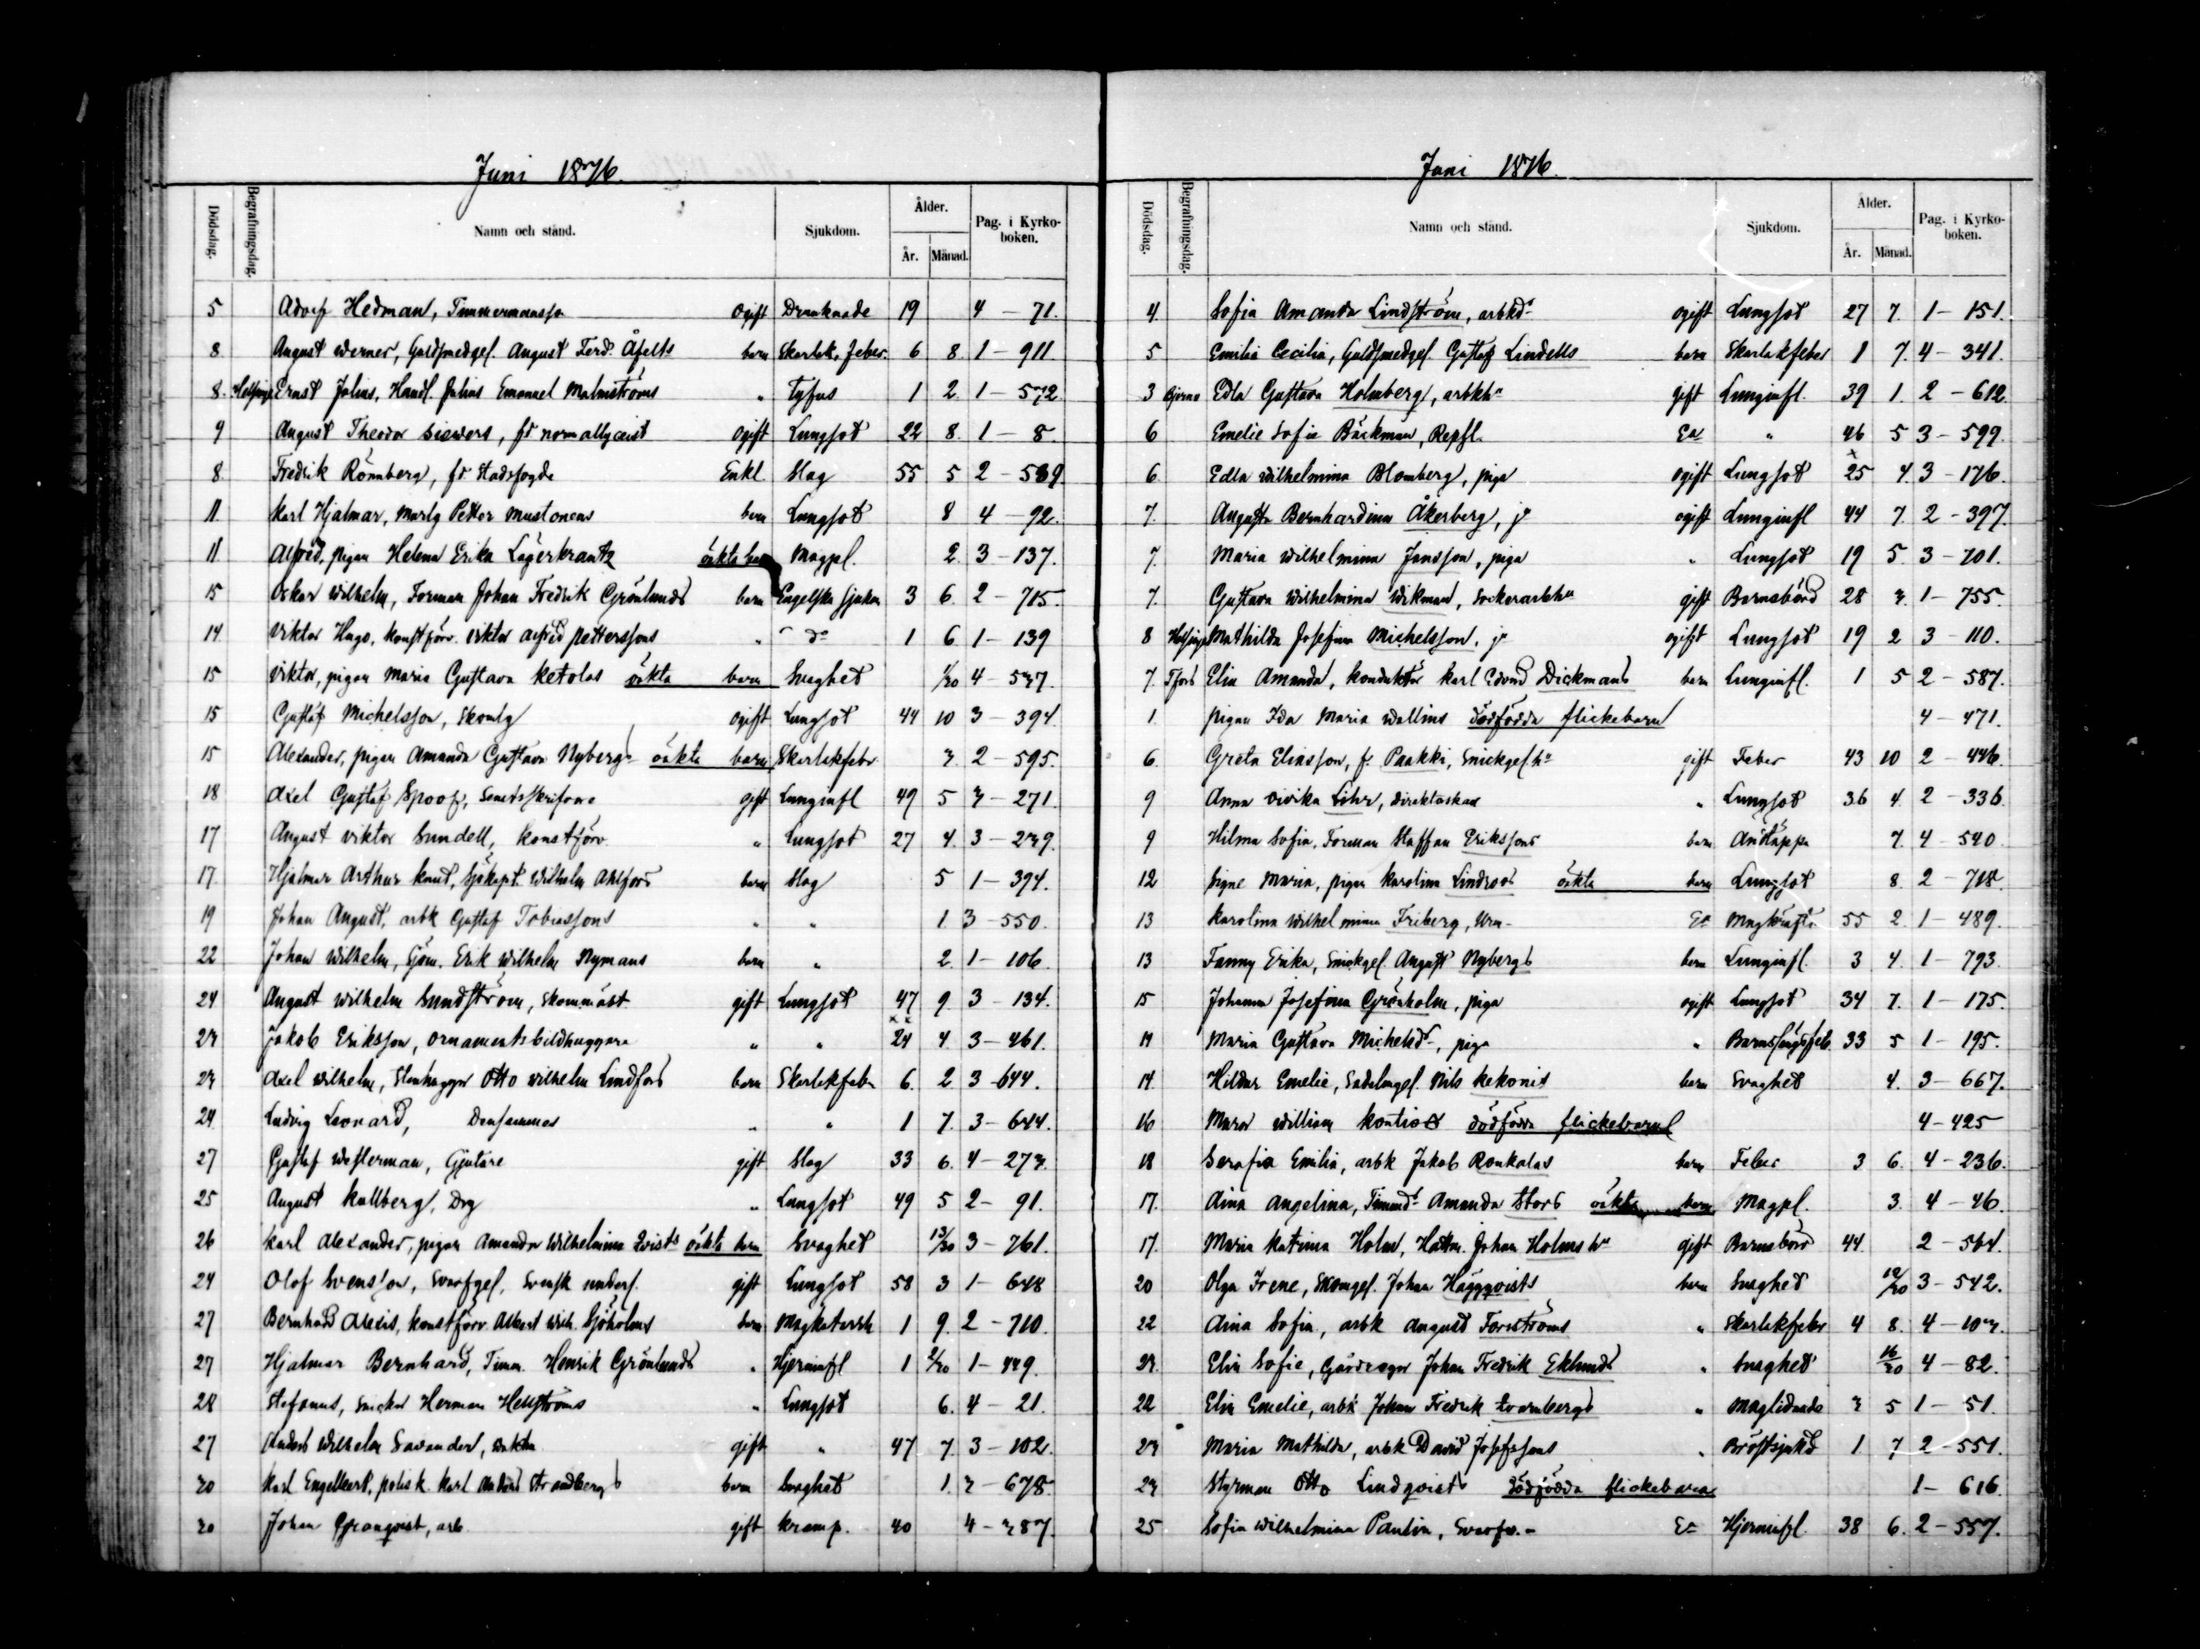 Juni 1876.
Dödsdag. Begrafningsdag. Namn och stånd. Sjukdom. Ålder. År. Månad. Pag. i Kyrko-boken.
5 Adolf Hedman, Timmermansson ogift Drunknade 19 4 – 71.
8 August Werner, Guldsmedgesl. August Ferd. Åfelts barn Skarlak. feber 6 8 1 – 911.
8. Ernst Julius, Handl. Julius Emanuel Malmströms " Tyfus 1 2 1 – 572
9 August Theodor Siewers, fd normallyceist ogift Lungsot 22 8. 1 – 8.
8. Fredrik Römberg, fd. Stadsfogde Enkl. Slag 55 5 2 – 539
11. Karl Hjalmar, Murlg Petter Mustonens barn Lungsot 8 4 – 92.
11 Alfred, pigan Helena Erika Lagerkrantz oäkta barn Magpl. 2. 3 – 137.
15 Oskar Wilhelm, Forman Johan Fredrik Grönlunds barn Engelska sjukan 3 6. 2 – 715.
14 Viktor Hugo, Konstförv. Viktor Alfred Petterssons " do 1 6 1 – 139
15 Viktor, pigan Maria Gustava Ketolas oäkta barn Svaghet 1/30 4 – 537.
15 Gustaf Michelsson, Skomlg ogift Lungsot 44 10 3 – 394.
15 Alexander, pigan Amanda Gustava Nybergs oäkta barn Skarlakfebr 3. 2 – 595.
18 Axel Gustaf Spoof, Senatsskrifvare gift Lunginfl 49 5 3 – 271.
17 August Viktor Sundell, Konstförv. " Lungsot 27 4. 3 – 239.
17. Hjalmar Arthur Knut, Sjökapt. Wilhelm Ahlfors barn Slag 5 1 – 394.
19 Johan August, arbk Gustaf Tobiassons " " 1 3 – 550.
22 Johan Wilhelm, Erik Wilhelm Nymans barn " 2. 1 – 106.
24 August Wilhelm Sundström, Skommäst. gift Lungsot 47 9. 3 – 134.
23 Jakob Eriksson, ornamentsbildhuggare " " 24 4. 3 – 461.
23 Axel Wilhelm, Stenhuggar Otto Wilhelm Lindfors barn Skarlakfebr 6. 2 3 – 644.
24 Ludvig Leonard, Densammes " " 1 7. 3 – 644.
27 Gustaf Westerman, Gjutare gift Slag 33 6. 4 – 273.
25 August Kullberg, Drg " Lungsot 49 5 2 – 91.
26 Karl Alexander, pigan Amanda Wilhelmina Qvists oäkta barn Svaghet 13/30 3 – 761.
24 Olof Svensson, Svarfgesl. Svensk unders. gift Lungsot 58 3 1 – 648
27 Bernhard Alexis, Konstförv. Albert Wilh. Sjöholms barn Magkatarrh 1 9. 2 – 710.
27 Hjalmar Bernhard, Timm. Henrik Grönlunds " Hjerninfl 1 2/30 1 – 449.
28 Stefanus, Snickar Herman Hellströms " Lungsot 6. 4 – 21.
27 Anders Wilhelm Savander, gift " 47 7. 3 – 102.
30 Karl Engelbert, polisk. Karl Strandbergs barn Svaghet 1. 3 – 678.
30 Johan Granqvist, arb. gift Kramp. 40 4 – 387.
Juni 1876.
Dödsdag. Begrafningsdag. Namn och stånd. Sjukdom. Ålder. År. Månad. Pag. i Kyrko-boken.
4. Sofia Amanda Lindström, arbkdr ogift Lungsot 27 7. 1 – 151.
5 Emilia Cecilia, Guldsmedgesl. Gustaf Lindells barn Skarlakfeber 1 7. 4 – 341.
3 Edla Gustava Holmberg, arbkhu gift Lunginfl. 39 1. 2 – 612.
6 Emelie Sofie Bäckman, Repsl. Ea " 46 5 3 – 599
6. Edla Wilhelmina Blomberg, piga ogift Lungsot 25 4. 3 – 176.
7. Augusta Bernhardina Åkerberg, ja ogift Lunginfl 44 7. 2 – 397.
7. Maria Wilhelmina Jansson, piga " Lungsot 19 5. 3 – 701.
7. Gustava Wilhelmina Wikman, Sockerarbhu gift Barnsbörd 28 3. 1 – 755.
8 Mathilda Josefina Michelsson, ja ogift Lungsot 19 2 3 – 110.
7. Elin Amanda, Konduktör Karl Edvard Dickmans barn Lunginfl. 1 5 2 – 587.
1. pigan Ida Maria Wallins dödfödda flickebarn 4 – 471.
6. Greta Eliasson, f. Paakki, Snickgesl.hu gift Feber 43 10 2 – 446.
9 Anna Vivika Lihr, Direktörskan " Lungsot 36 4. 2 – 336.
9 Hilma Sofia, Forman Staffan Erikssons barn Andtäppa 7. 4 – 540
12 Signe Maria, pigan Karolina Lindroos oäkta barn Lungsot 8. 2 – 718.
13 Karolina Wilhelmina Friberg, Urm. Ea Magkräfta 55 2. 1 – 489.
13 Fanny Erika, Snickgesl. August Nybergs barn Lunginfl. 3 4. 1 – 793.
15 Johanna Josefina Grönholm, piga ogift Lungsot 34 7. 1 – 175.
14 Maria Gustava Michelsdr, piga " Barnsängsfeb. 33 5 1 – 195.
14. Hildur Emelie, Sadelmgesl. Nils Kekonis barn Svaghet 4. 3 – 667.
16 Murar William Kontios dödfödda flickebarn 4 – 425
18 Serafia Emilia, arbk Jakob Ronkalas barn Feber 3 6. 4 – 236.
17. Aina Angelina, Timmdr Amanda Stors oäkta barn Magpl. 3. 4 – 46.
17. Maria Katrina Holm, Johan Holms hu gift Barnsbörd 44. 2 – 564.
20 Olga Irene, Skomgesl. Johan Häggqvists barn Svaghet 12/30 3 – 542.
22 Aina Sofia, arbk August Forströms " Skarlakfeber 4 8. 4 – 103.
23. Elin Sofie, Gårdsegar Johan Fredrik Eklunds " Svaghet 16/30 4 – 82.
22 Elin Emelie, arbk Johan Fredrik " Maglidande 3 5 1 – 51.
23 Maria Mathilda, arbk David Josefssons " Bröstsjukd 1 7 2 – 551.
23 Styrman Otto Lindqvists dödfödda flickebarn 1 – 616
25 Sofia Wilhelmina Paulin, Svarfv. Ea Hjerninfl. 38 6. 2 – 557.